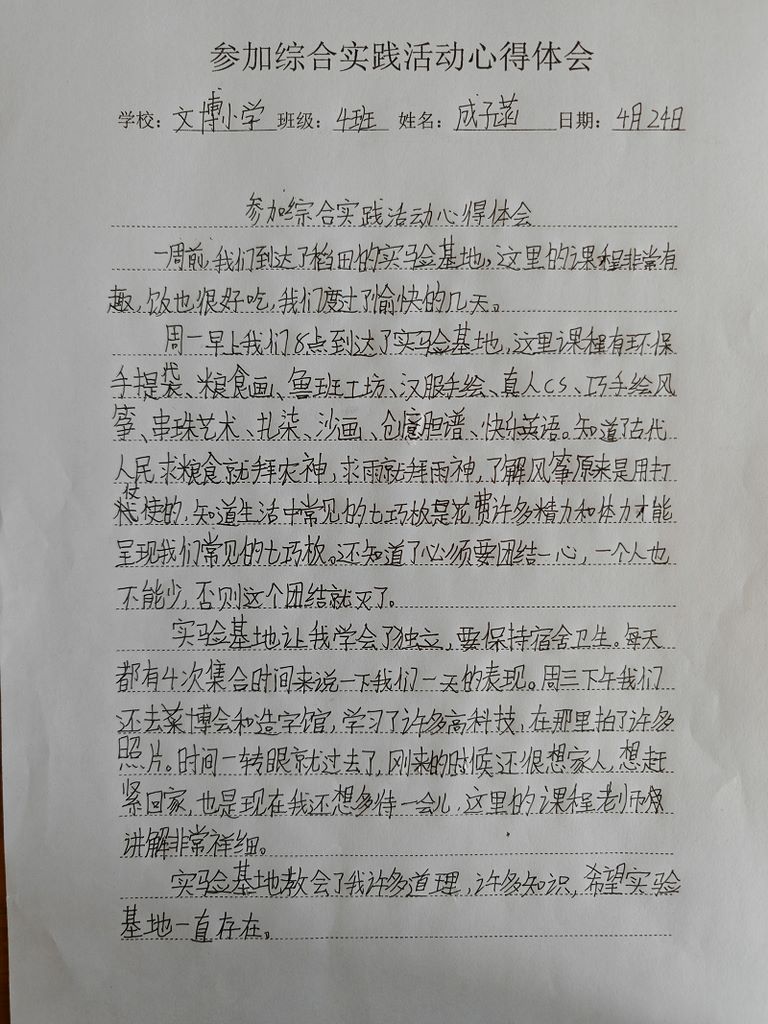 参加综合实践活动心得体会
学校：文博小学 班级：4班 姓名：成子菡 日期：4月24日
参加综合实践活动心得体会
一周前，我们到达了稻田的实验基地，这里的课程非常有
趣，饭也很好吃，我们度过了愉快的几天。
周一早上我们8点到达了实验基地，这里课程有环保
手提袋、粮食画、鲁班工坊、汉服手绘、真人CS、巧手绘风
筝、串珠艺术、扎染、沙画、创意胆谱、快乐英语。知道了古代
人民求粮食就拜农神，求雨就拜雨神，了解风筝原来是用打
仗使的，知道生活中常见的七巧板是花费许多精力和体力才能
呈现我们常见的七巧板。还知道了必须要团结一心，一个人也
不能少，否则这个团结就灭了。
实验基地让我学会了独立，要保持宿舍卫生。每天
都有4次集合时间来说一下我们一天的表现。周三下午我们
还去菜博会和造字馆，学习了许多高科技，在那里拍了许多
照片。时间一转眼就过去了，刚来的时候还很想家人，想赶
紧回家，也是现在我还想多待一会儿，这里的课程老师
讲解非常祥细。
实验基地教会了我许多道理，许多知识，希望实验
基地一直存在。